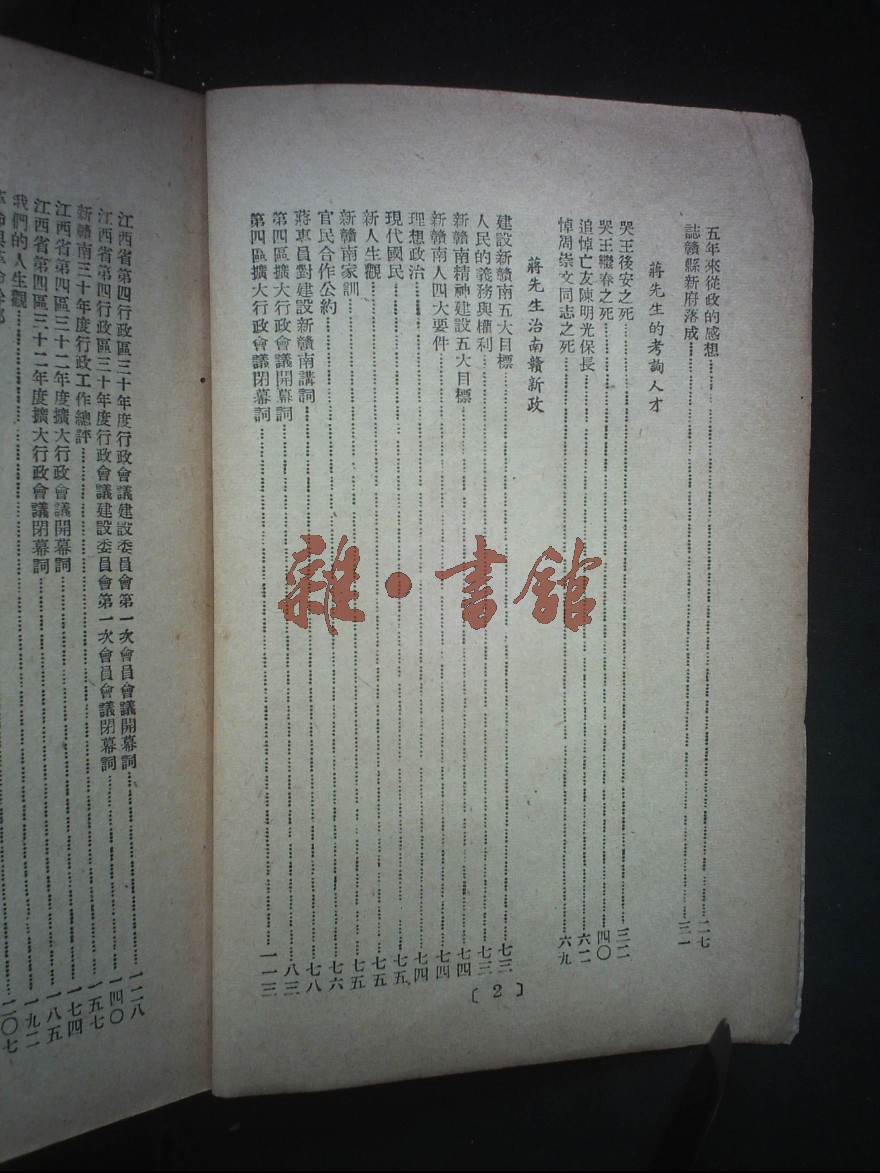 五年來從政的感想 二七
誌贛縣新府落成 三一
蔣先生的考詢人才
哭王後安之死 三二
哭王繼春之死 四〇
追悼亡友陳明光保長 六二
悼周崇文同志之死 六九
蔣先生治南贛新政
建設新贛南五大目標 七三
人民的義務與權利 七三
新贛南精神建設五大目標 七四
新贛南人四大要件 七四
理想政治 七四
現代國民 七五
新人生觀 七五
新贛南家訓 七五
官民合作公約 七六
蔣專員對建設新贛南講詞 七八
第四區擴大行政會議開幕詞 八三
第四區擴大行政會議閉幕詞 一一三
〔2〕
江西省第四行政區三十年度行政會議建設委員會第一次會員會議開幕詞 一二八
江西省第四行政區三十年度行政會議建設委員會第一次會員會議閉幕詞 一四〇
新贛南三十年度行政工作總評 一五七
江西省第四區三十二年度擴大行政會議開幕詞 一七四
江西省第四區三十二年度擴大行政會議閉幕詞 一八五
我們的人生觀 一九二
革命與革命幹部 二〇七
雜·書館